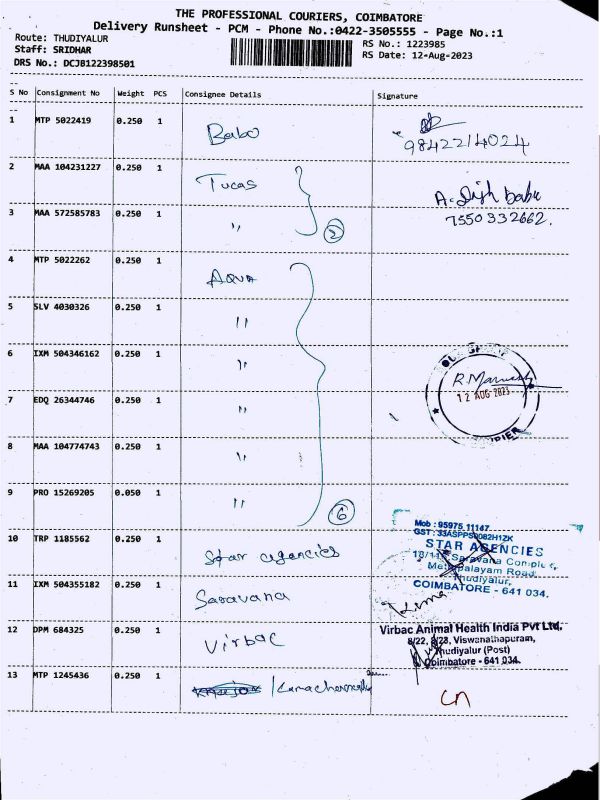 THE PROFESSIONAL COURIERS, COIMBATORE
Delivery Runsheet - PCM - Phone No.:0422-3505555 - Page No.:1
Route: THUDIYALUR
RS No.: 1223985
Staff: SRIDHAR
RS Date: 12-Aug-2023
DRS No.: DCJB122398501
S No Consignment No Weight PCS Consignee Details Signature
1 MTP 5022419 0.250 1 Babo
9842214024
2 MAA 104231227 0.250 1 Tucas
3 MAA 572585783 0.250 1 " 2
babu
7550332662.
4 MTP 5022262 0.250 1 Aqua
5 SLV 4030326 0.250 1 "
6 IXM 504346162 0.250 1 "
7 EDQ 26344746 0.250 1 "
12 AUG 2023
8 MAA 104774743 0.250 1 "
9 PRO 15269205 0.050 1 " 6
10 TRP 1185562 0.250 1 Star agencies
Mob : 95975 11147
STAR AGENCIES
Saravana Complex,
Mettupalayam Road
Thudiyalur,
COIMBATORE - 641 034.
11 IXM 504355182 0.250 1 Saravana
12 DPM 684325 0.250 1 Virbac
Virbac Animal Health India Pvt Ltd.
8/22, 8/23, Viswanathapuram,
Thudiyalur (Post)
Coimbatore - 641 034.
13 MTP 1245436 0.250 1